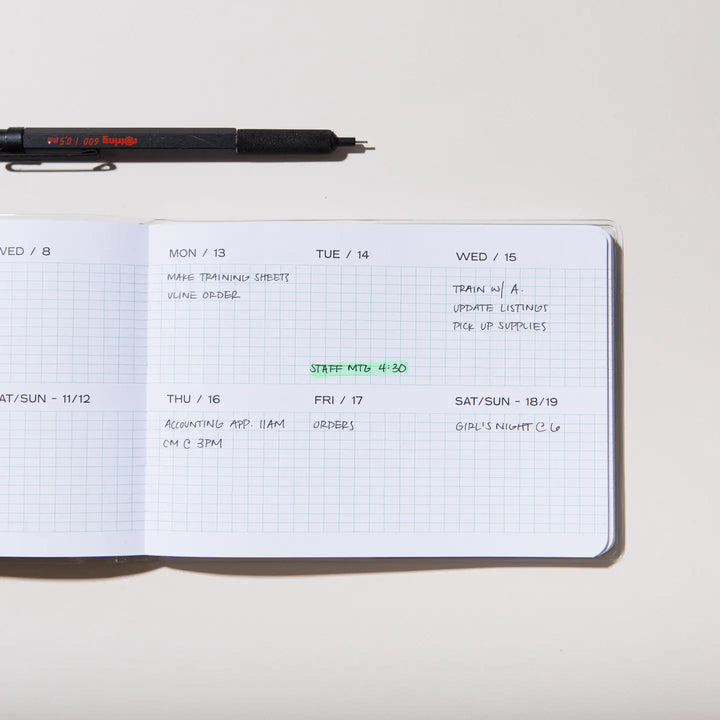 rOtring 600 | 0,5 mm
WED / 8
MON / 13
TUE / 14
WED / 15
MAKE TRAINING SHEETS
VLINE ORDER
TRAIN W/ A.
UPDATE LISTINGS
PICK UP SUPPLIES
STAFF MTG 4:30
SAT/SUN - 11/12
THU / 16
FRI / 17
SAT/SUN - 18/19
ACCOUNTING APP. 11AM
CM C 3PM
ORDERS
GIRL'S NIGHT C 6